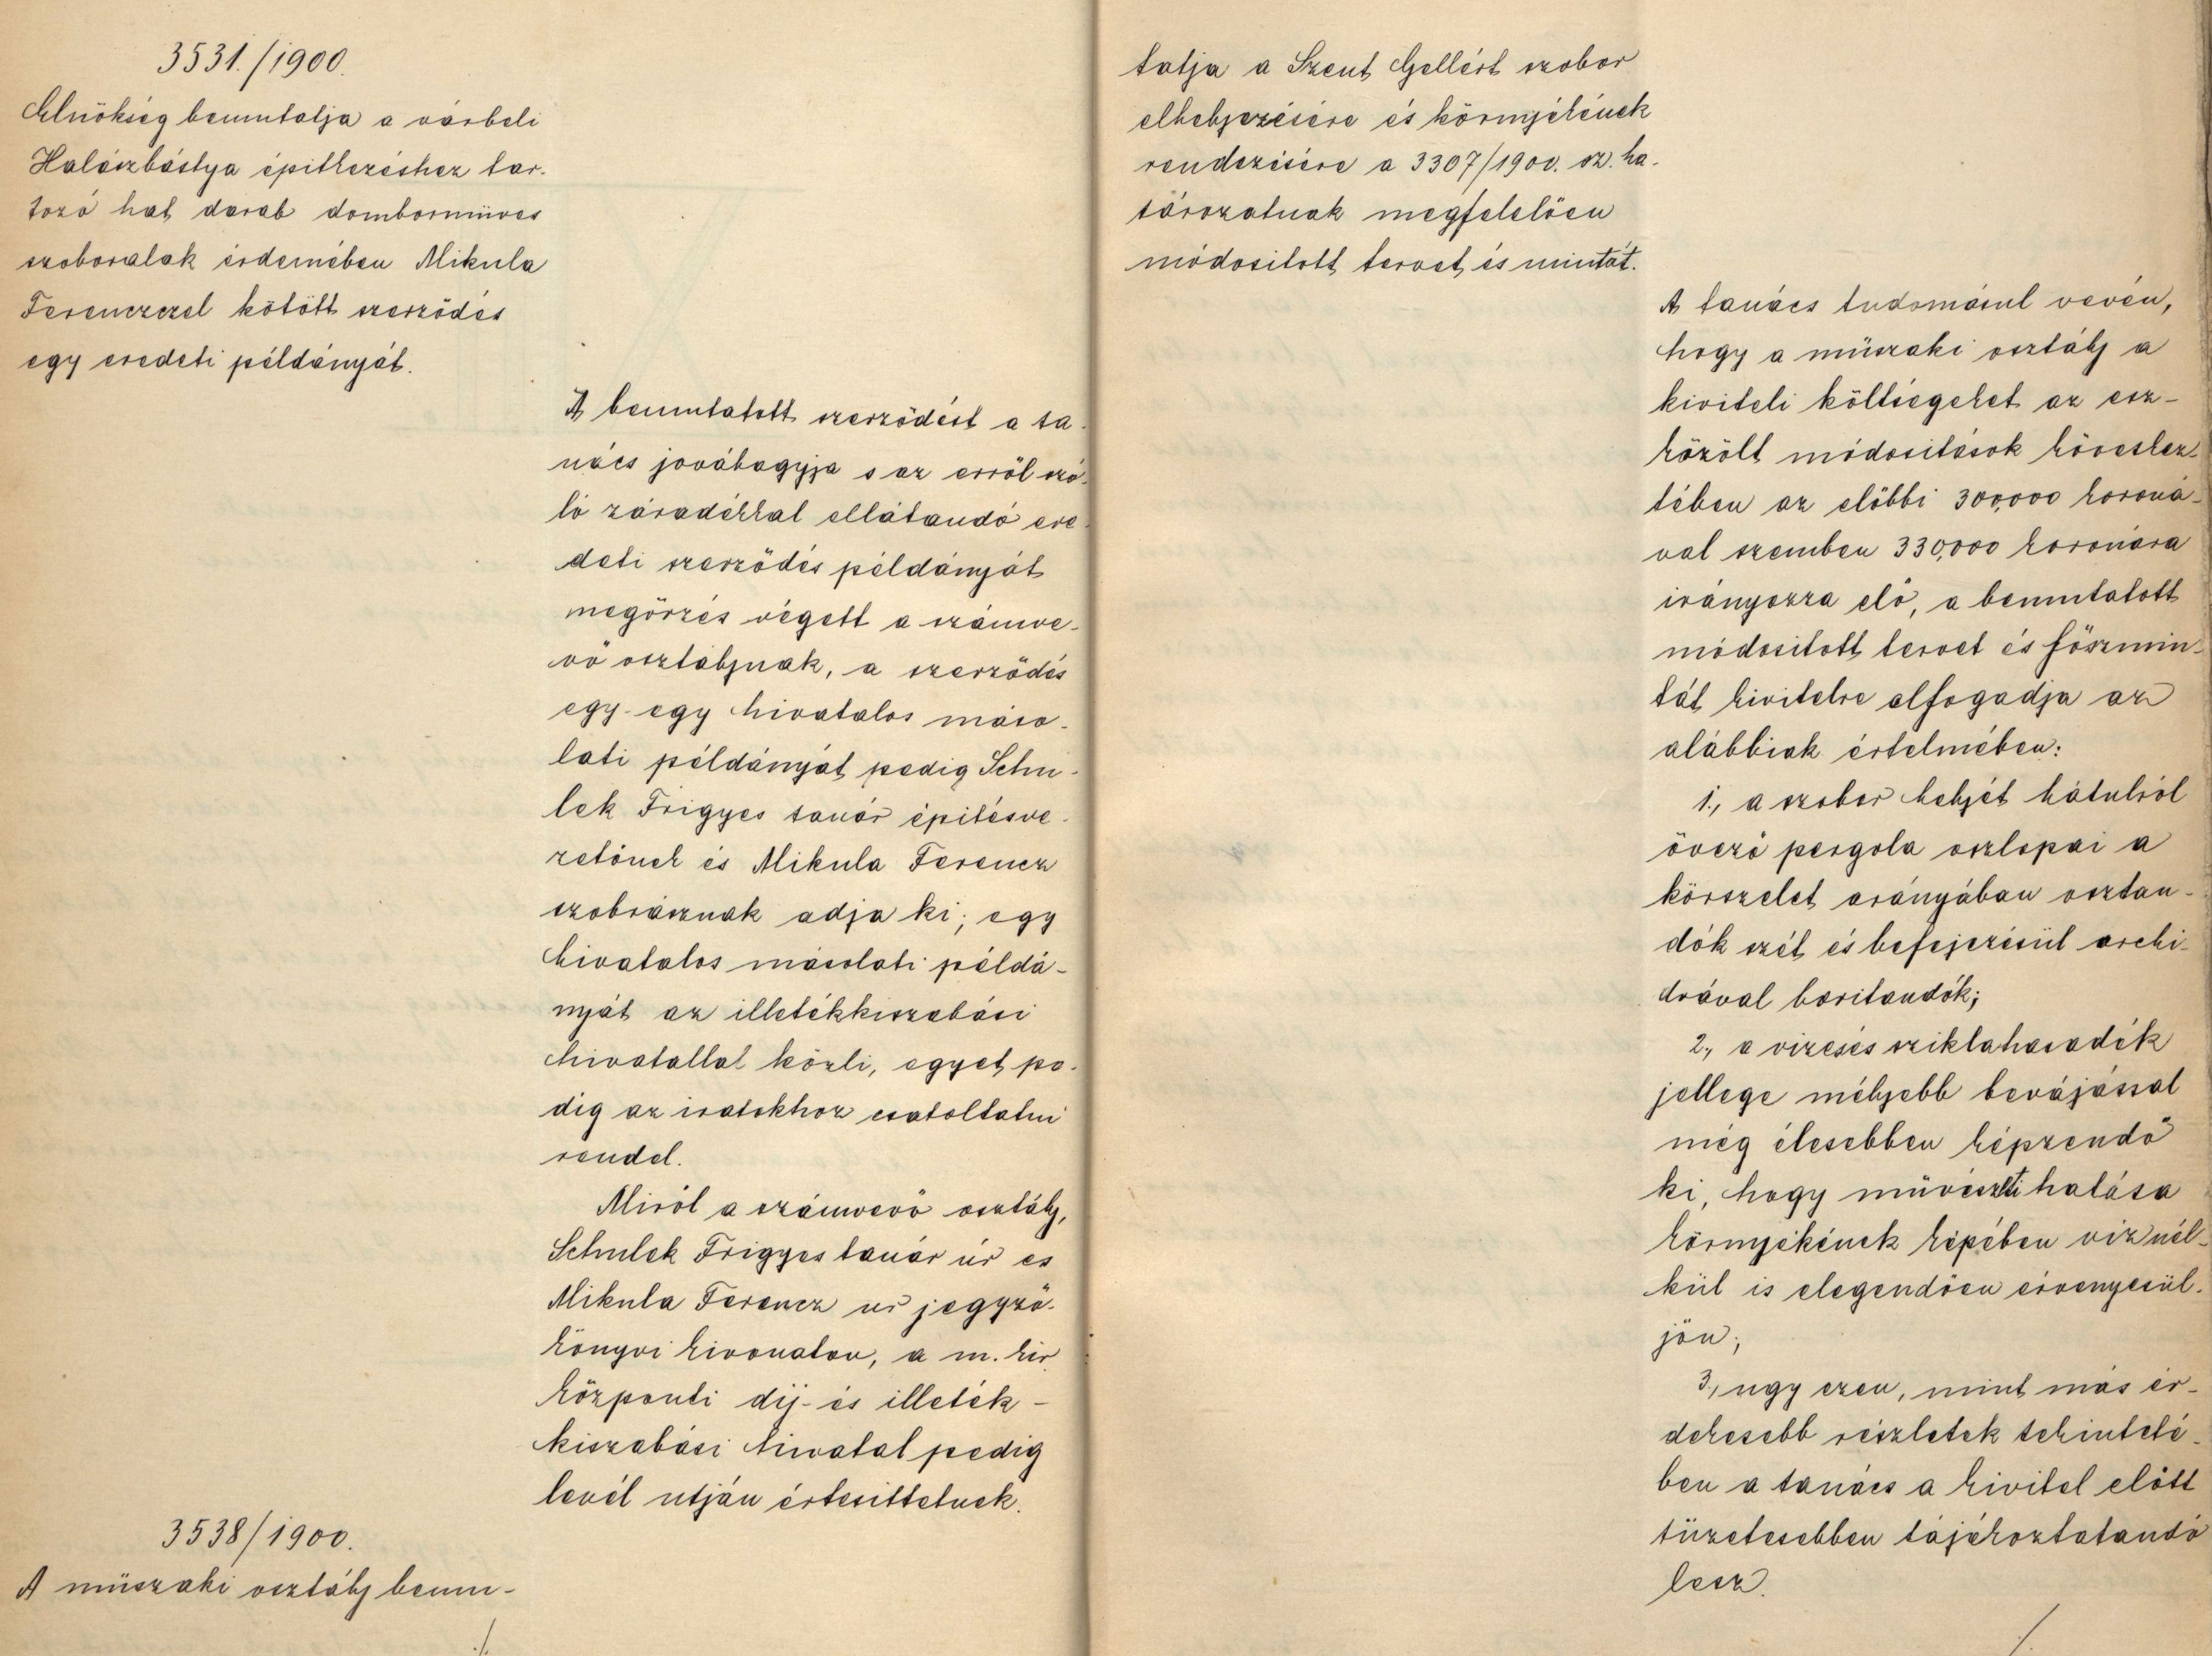 3531./1900.
Elnökség bemutatja a várbeli
Halászbástya épitkezéshez tar-
tozó hat darab dombormüves
szoboralak érdemében Mikula
Ferenczczel kötött szerződés
egy eredeti példányát.
A bemutatott szerződést a ta-
nács jováhagyja s az erről szó-
ló záradékkal ellátandó ere-
deti szerződés példányát
megőrzés végett a számve-
vő osztálynak, a szerződés
egy-egy hivatalos máso-
lati példányát pedig Schu-
lek Frigyes tanár épitésve-
zetőnek és Mikula Ferencz
szobrásznak adja ki; egy
hivatalos másolati példá-
nyát az illetékkiszabási
hivatallal közli, egyet pe-
dig az iratokhoz csatoltatni
rendel.
Miről a számvevő osztály,
Schulek Frigyes tanár úr és
Mikula Ferencz ur jegyző-
könyvi kivonaton, a m. kir.
központi dij- és illeték-
kiszabási hivatal pedig
levél utján értesittetnek.
3538/1900.
A müszaki osztály bemu-
./.
tatja a Szent Gellért szobor
elhelyezésére és környékének
rendezésére a 3307/1900. sz. ha-
tározatnak megfelelően
módositott tervet és mintát.
A tanács tudomásul vevén,
hogy a müszaki osztály a
kiviteli költségeket az esz-
közölt módositások következ-
tében az előbbi 300,000 koroná-
val szemben 330,000 koronára
irányozza elő, a bemutatott
módositott tervet és főszmin-
tát kivitelre elfogadja az
alábbiak értelmében:
1., a szobor helyét hátulról
övező pergola oszlopai a
körszelet arányában osztan-
dók szét és befejezésül archi-
drával boritandók;
2., a vizesés sziklahasadék
jellege mélyebb bevájással
még élesebben képzendő
ki, hogy müvészeti hatása
környékének képében viz nél-
kül is elegendően érvényesül-
jön;
3., ugy ezen, mint más ér-
dekesebb részletek tekinteté-
ben a tanács a kivitel előtt
tüzetesebben tájékoztatandó
lesz.
./.